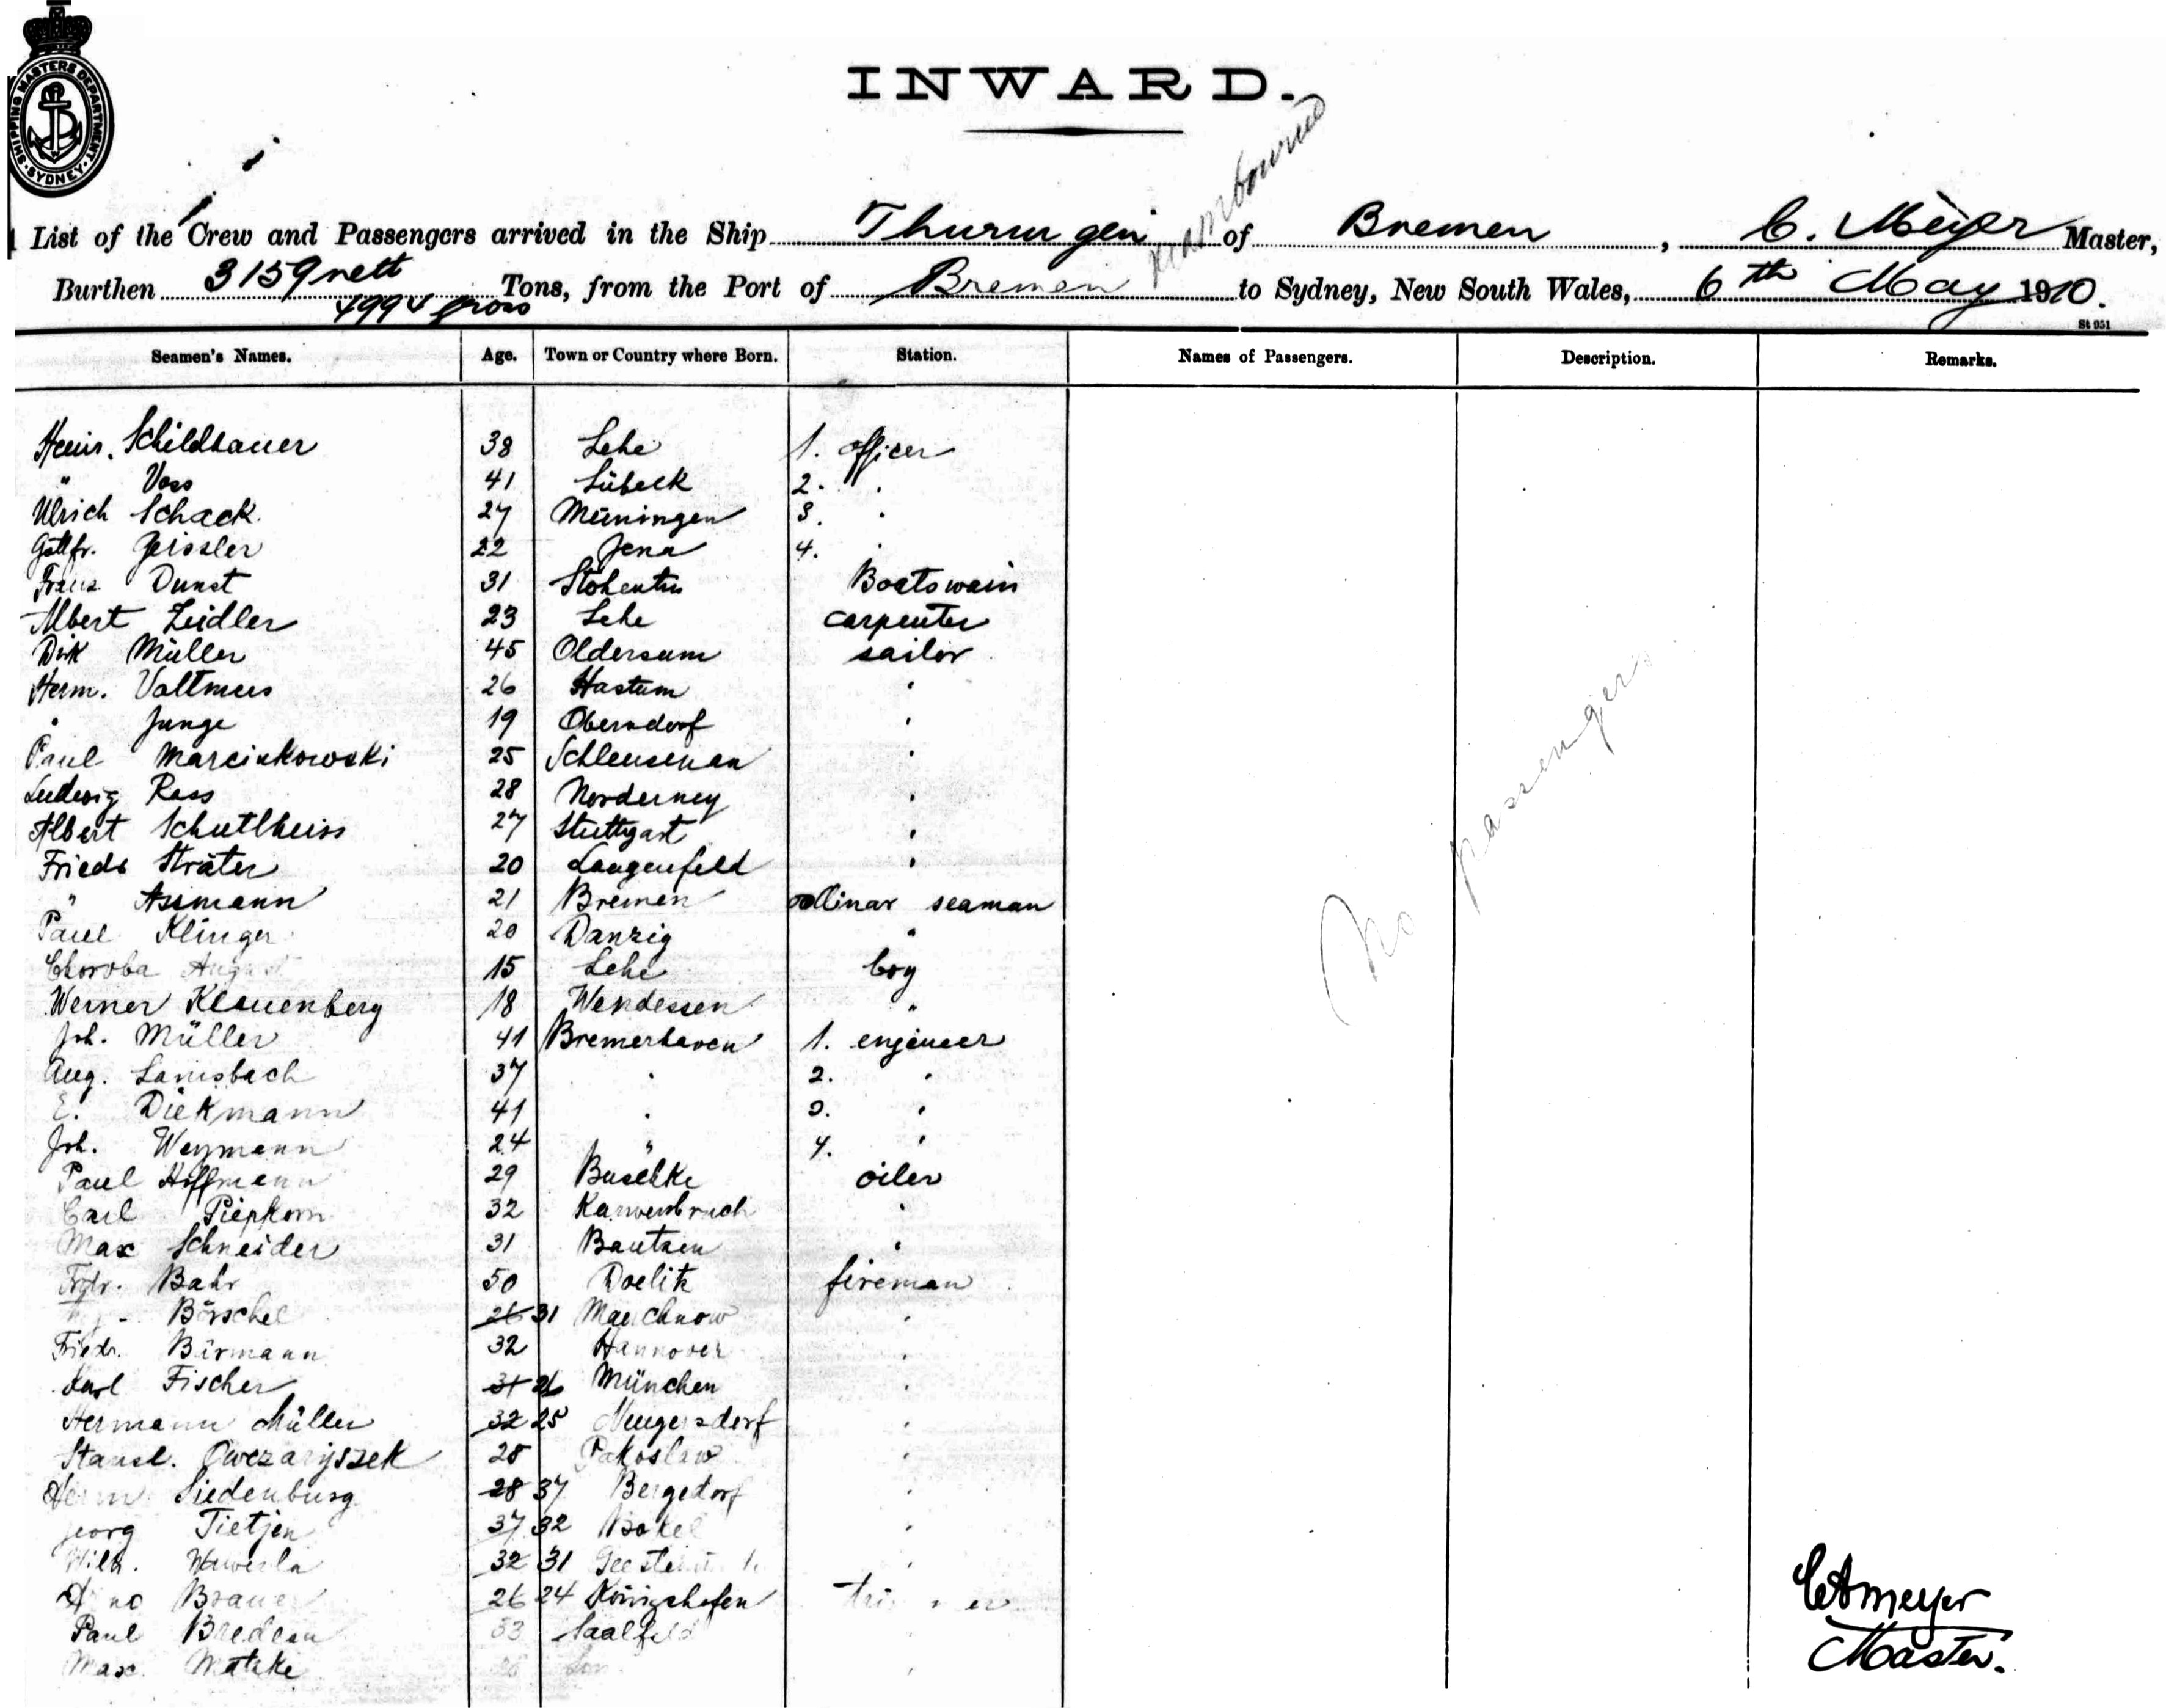 SHIPPING MASTERS DEPARTMENT · SYDNEY ·
INWARD.
List of the Crew and Passengers arrived in the Ship Thuringen of Bremen, C. Meyer Master,
Burthen 3159 nett Tons, from the Port of Bremen to Sydney, New South Wales, 6th May 1910.
4994 gross
St 951
Seamen's Names. Age. Town or Country where Born. Station. Names of Passengers. Description. Remarks.
Heinr. Schildhauer 38 Lehe 1. officer
" Voss 41 Lübeck 2. "
Ulrich Schack 27 Meiningen 3. "
Gottfr. Zeissler 22 Jena 4. "
Franz Dunst 31 Boatswain
Albert Zeidler 23 Lehe carpenter
Dirk Müller 45 Oldersum sailor
Herm. Valtmers 26 Hastum "
" Junge 19 Oberndorf "
Paul Marcinkowski 25 Schleusenau "
Ludwig Rass 28 Norderney "
Albert Schultheiss 27 Stuttgart "
Friedr Sträter 20 Langenfeld "
" Assmann 21 Bremen seaman
Paul Klinger 20 Danzig "
Choroba August 15 Lehe boy
Werner Klauenberg 18 Wendessen "
Joh. Müller 41 Bremerhaven 1. engineer
Aug. Lamsbach 37 " 2. "
E. Diekmann 41 " 3. "
Joh. Weymann 24 " 4. "
Paul Hoffmann 29 oiler
Carl Piepkorn 32 "
Max Schneider 31 Bautzen "
Frdr. Bahr 50 Doelitz fireman
Börschel 26 31 Manchnow "
Friedr. Birmann 32 Hannover "
Karl Fischer 31 26 München "
Hermann Müller 32 25 Neugersdorf "
Stansl. Owczaryszek 28 Pakoslaw "
Herm Siedenburg 28 37 Bergedorf "
Georg Tietjen 37 32 Bokel "
Wilh. Wawerla 32 31 "
Brauer 26 24 Königshofen
Paul Bredlau 33 Saalfeld "
Max Matzke "
No passengers
CA Meyer
Master.